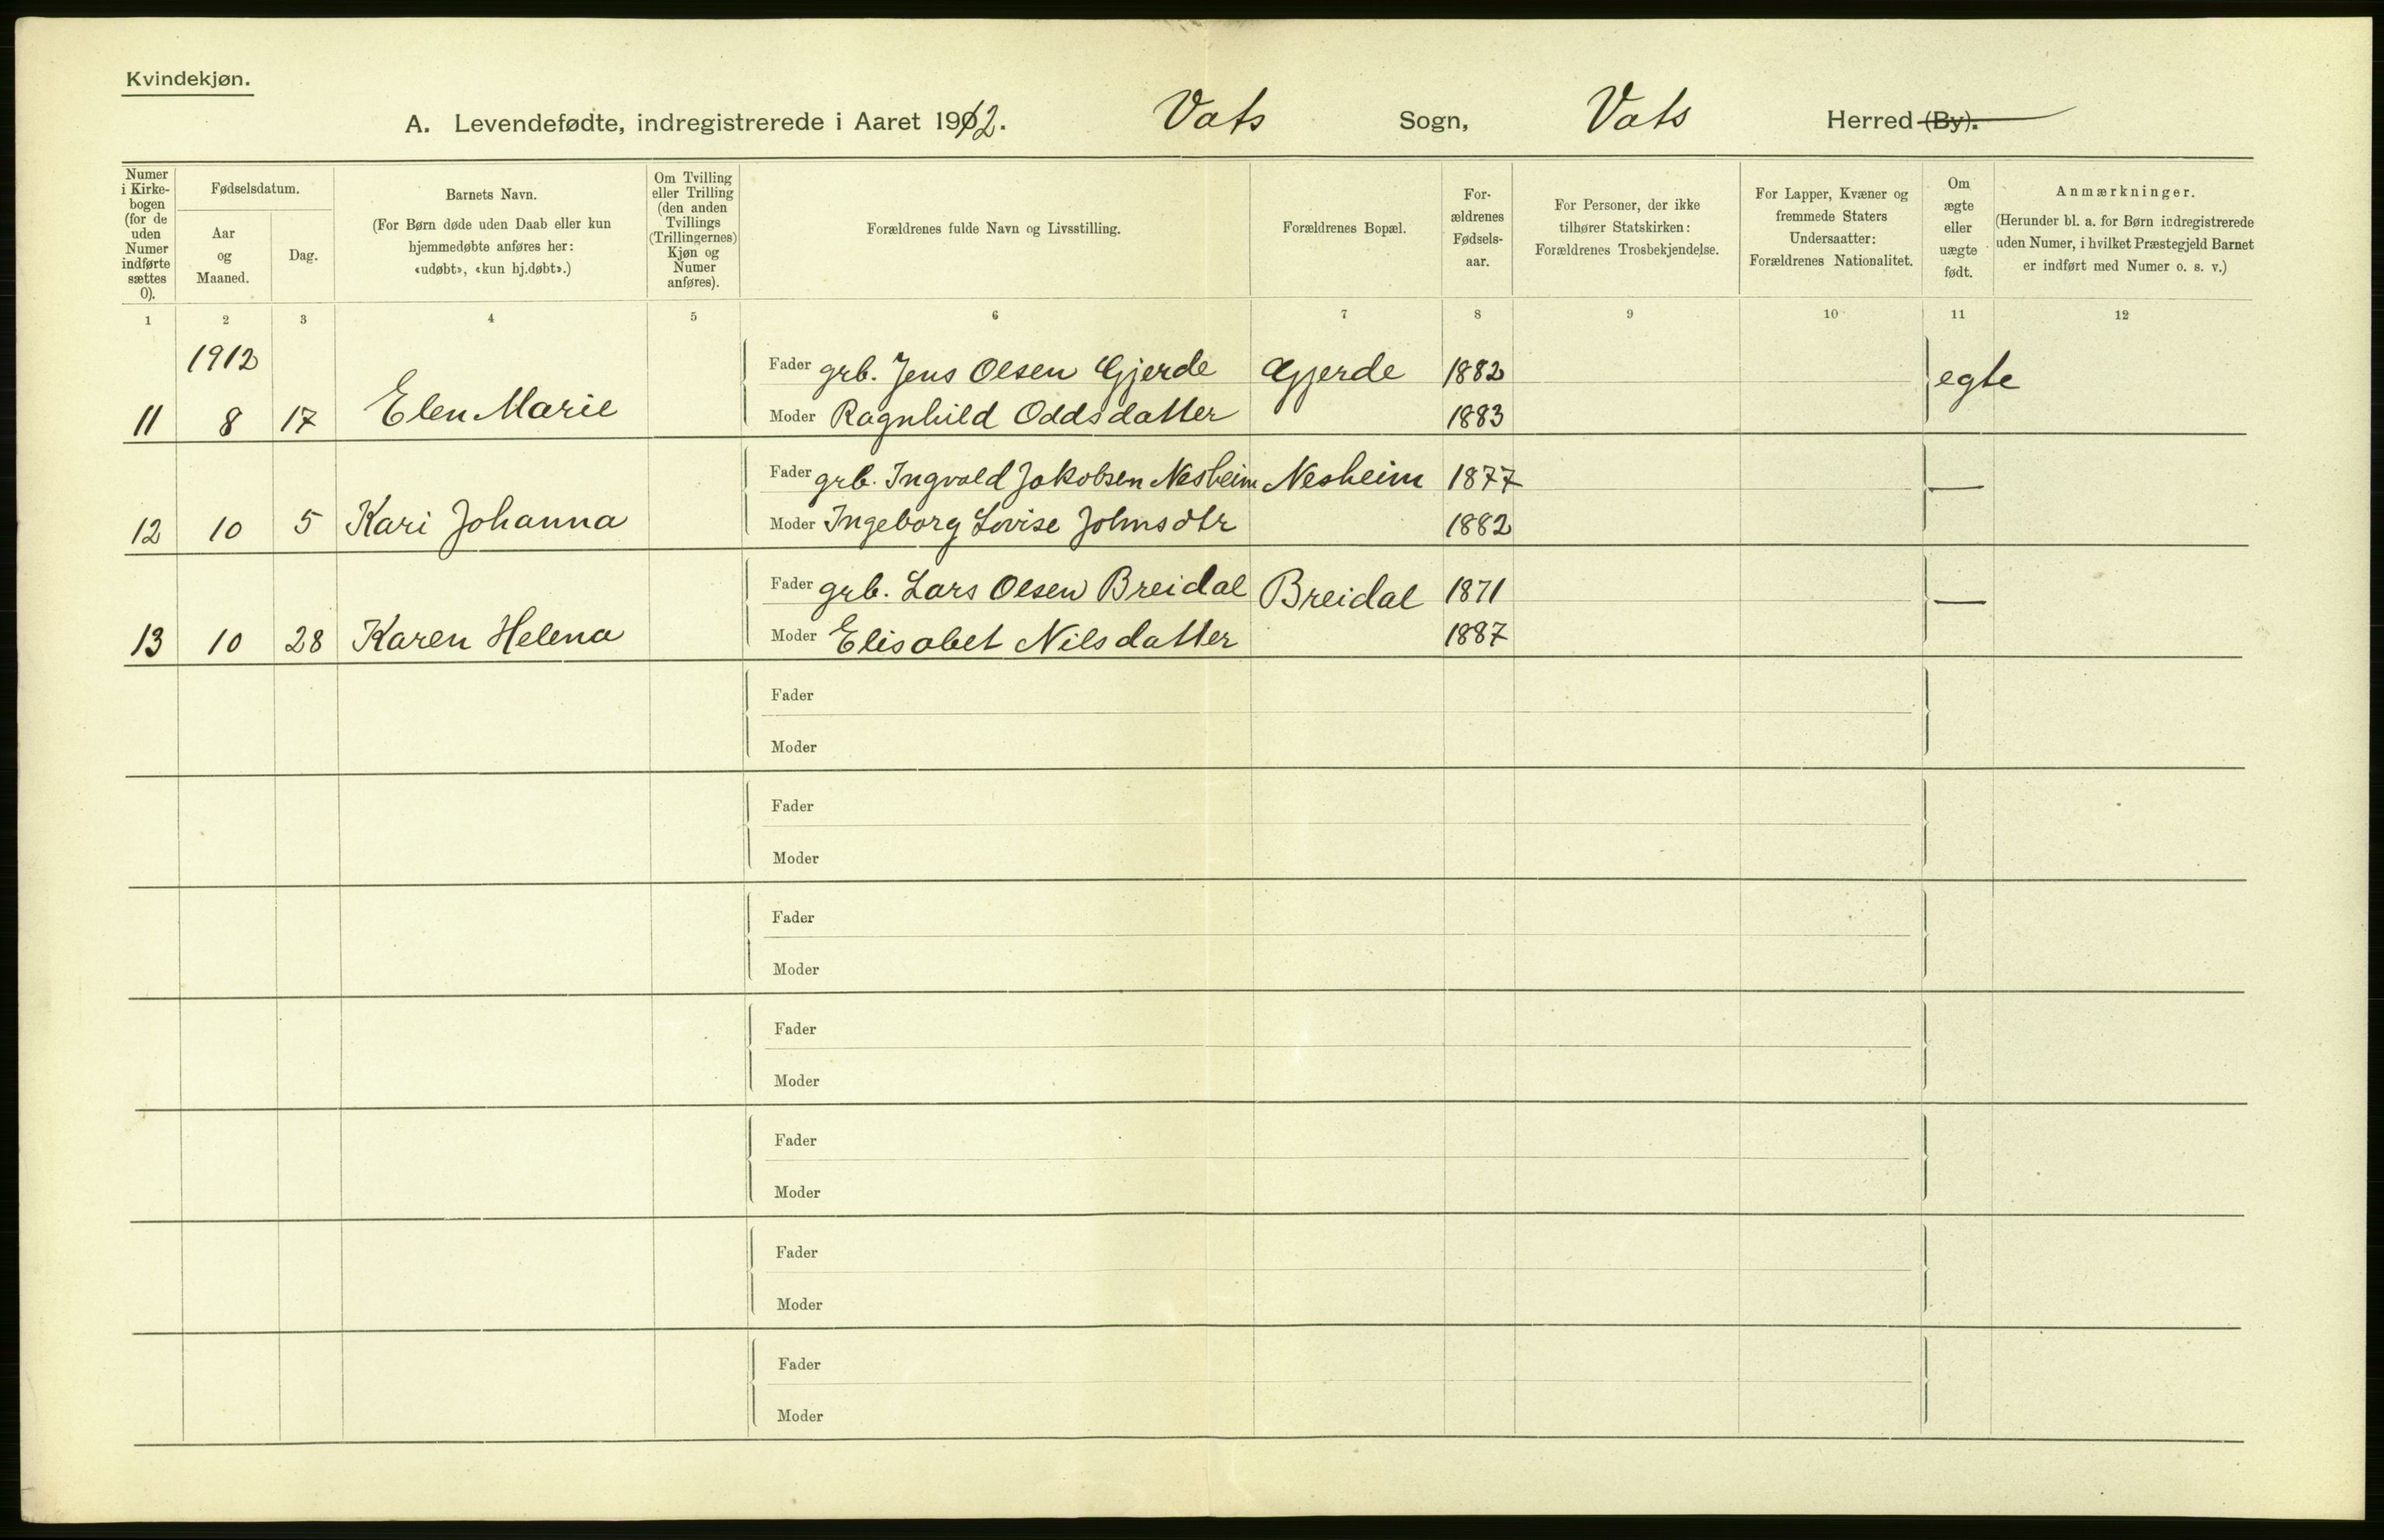 Kvindekjøn.
A. Levendefødte, indregistrerede i Aaret 1912. Vats Sogn, Vats Herred (By).
Numer i Kirkebogen (for de uden Numer indførte sættes 0).
Fødselsdatum.
Aar og Maaned.
Dag.
Barnets Navn.
(For Børn døde uden Daab eller kun hjemmedøbte anføres her: «udøbt», «kun hj.døbt».)
Om Tvilling eller Trilling (den anden Tvillings (Trillingernes) Kjøn og Numer anføres).
Forældrenes fulde Navn og Livsstilling.
Forældrenes Bopæl.
Forældrenes Fødselsaar.
For Personer, der ikke tilhører Statskirken: Forældrenes Trosbekjendelse.
For Lapper, Kvæner og fremmede Staters Undersaatter: Forældrenes Nationalitet.
Om ægte eller uægte født.
Anmærkninger.
(Herunder bl. a. for Børn indregistrerede uden Numer, i hvilket Præstegjeld Barnet er indført med Numer o. s. v.)
1 2 3 4 5 6 7 8 9 10 11 12
1912 Fader grb. Jens Olsen Gjerde Gjerde 1882 egte
11 8 17 Elen Marie Moder Ragnhild Oddsdatter 1883
Fader grb. Ingvald Jakobsen Nesheim Nesheim 1877 —
12 10 5 Kari Johanna Moder Ingeborg Lovise Johnsdtr 1882
Fader grb. Lars Olsen Breidal Breidal 1871 —
13 10 28 Karen Helena Moder Elisabet Nilsdatter 1887
Fader
Moder
Fader
Moder
Fader
Moder
Fader
Moder
Fader
Moder
Fader
Moder
Fader
Moder